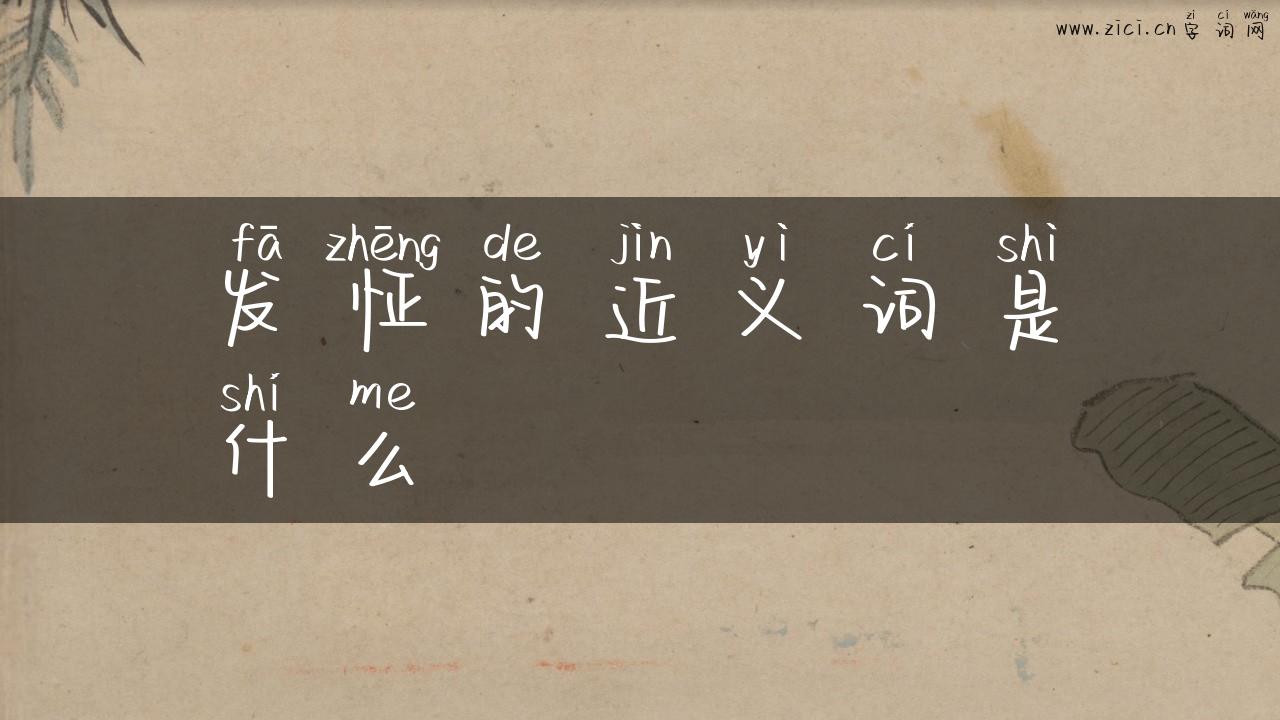 zì cí wǎng
www.zici.cn 字词网
fā zhēng de jìn yì cí shì
发怔的近义词是
shí me
什么